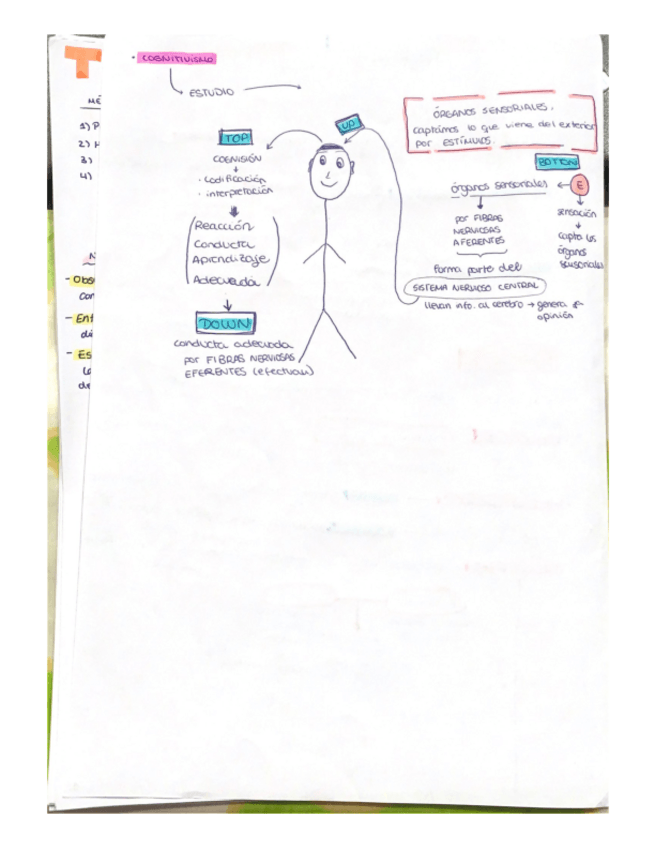 T
MÉ
1) P
2) H
3)
4)
N
- Obs
con
- Ent
di
- Es
de
· COGNITIVISMO
ESTUDIO
TOP
COGNISIÓN
· codificación
· interpretación
Reacción
Conducta
Aprendizaje
Adecuada
DOWN
conducta adecuada
por FIBRAS NERVIOSAS
EFERENTES (efectuar)
UP
ÓRGANOS SENSORIALES.
captamos lo que viene del exterior
por ESTÍMULOS.
BOTTON
órganos sensoriales
E
sensación
capta los
órganos
sensoriales
por FIBRAS
NERVIOSAS
AFERENTES
Forma parte del
SISTEMA NERVIOSO CENTRAL
llevan info. al cerebro → genera
opinión